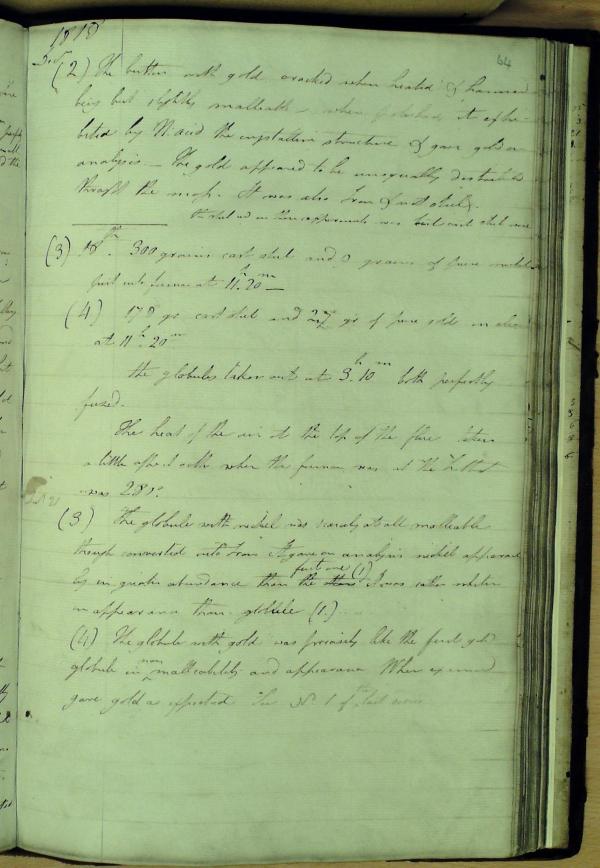 1818
64
(2) The button with gold cracked when heated & hammered
being but slightly malleable - when polished, it exhi-
bited by N. acid the crystalline structure & gave gold on
analysis - The gold appeared to be unequally distributed
through the mass. It was also Iron & not steel
the steel used in these experiments was cast steel
(3) 18th. 300 grains cast steel and grains of pure nickel
put into furnace at 11h. 20m —
(4) 178 grs cast steel and grs of pure gold in also
at 11h. 20m
the globules taken out at 3h. 10m both perfectly
fused.
The heat of the air at the top of the flue taken
a little when the furnace was at the hottest
was 280°.
(3) The globule with nickel was scarcely at all malleable
though converted into Iron It gave on analysis nickel apparent
ly in greater abundance than the first one (1) It was rather whiter
in appearance than globule (1.)
(4) The globule with gold was precisely like the first gold
globule in non malleability and appearance. When examined
gave gold as expected See No. 1 of the last